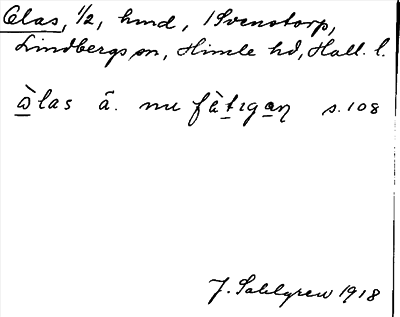 Olas, 1/2, hmd, i Svenstorp,
Lindbergs sn, Himle hd, Hall. l.
òlas ā. nu fàtıgan s. 108
J. Sahlgren 1918